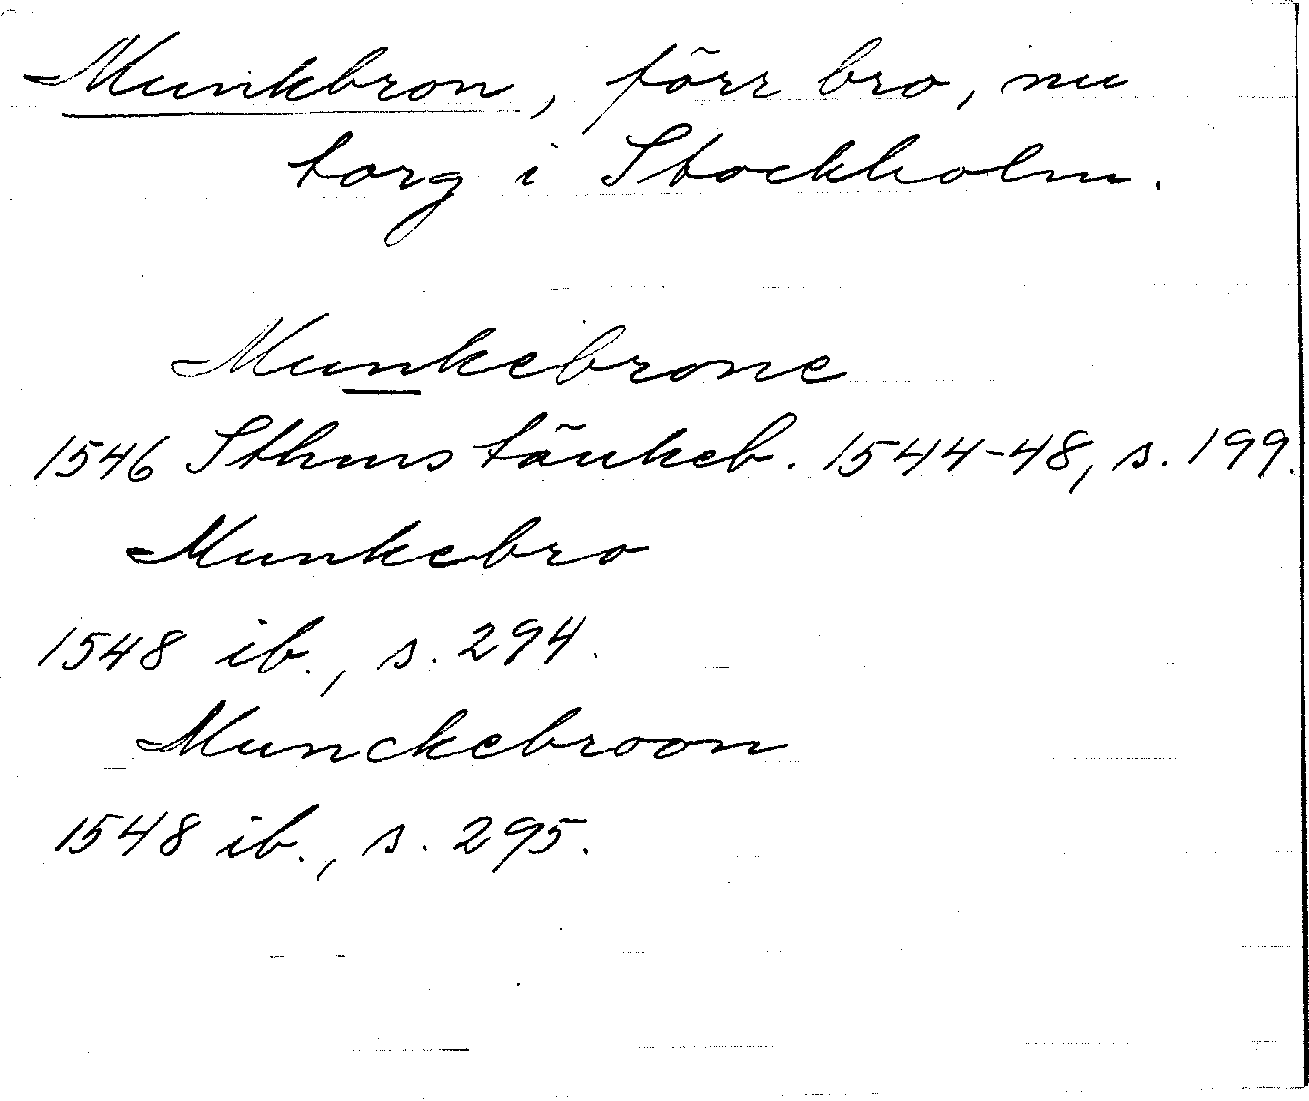 Munkbron, förr bro, nu
torg i Stockholm.
Munkebrone
1546 Sthms tänkeb. 1544-48, s. 199.
Munkebro
1548 ib., s. 294.
Munckebroon
1548 ib., s. 295.